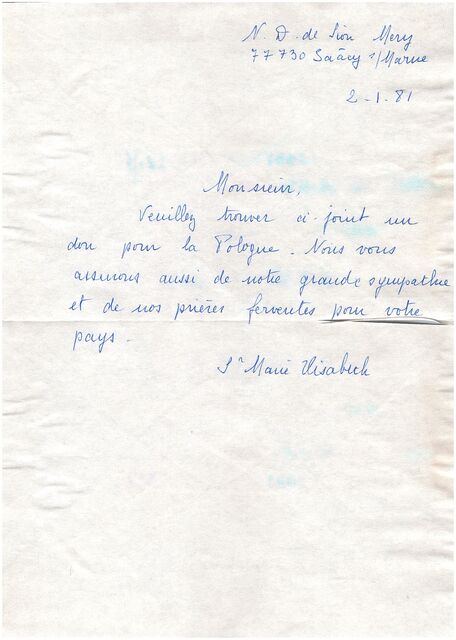 N. D. de Sion Mery
77730 Saâcy s/Marne
2-1-81
Monsieur,
Veuillez trouver ci-joint un
don pour la Pologne. Nous vous
assurons aussi de notre grande sympathie
et de nos prières ferventes pour votre
pays.
Sr Marie Elisabeth